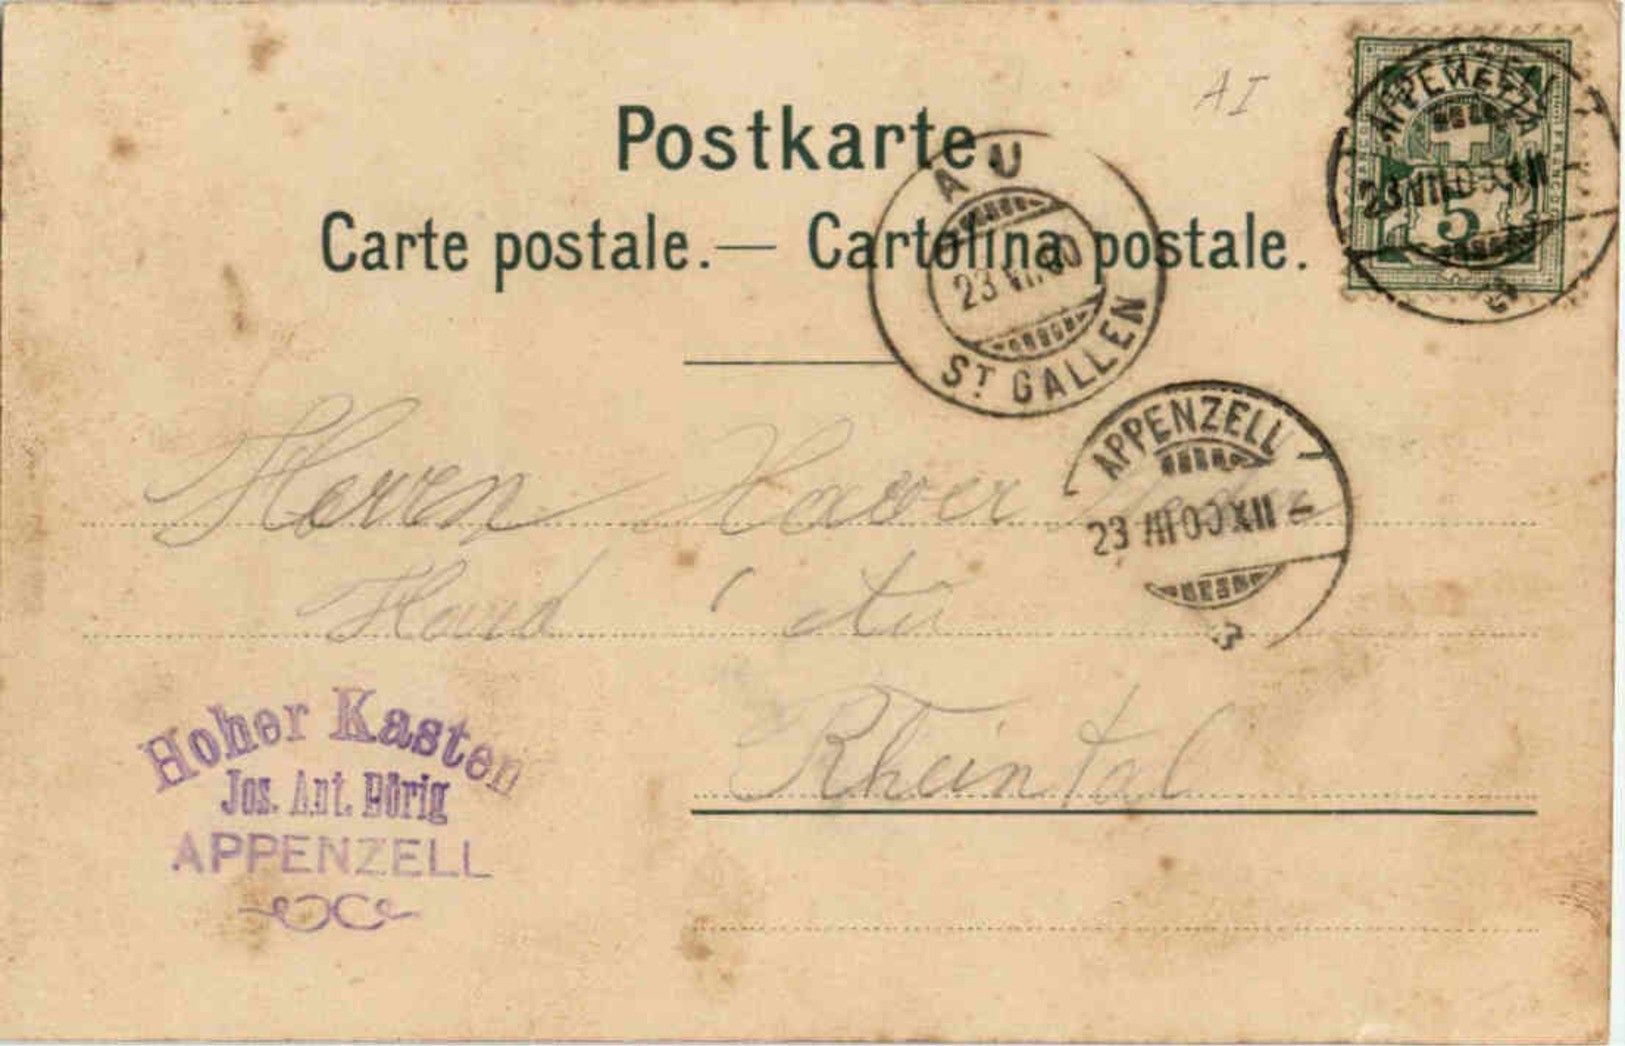 AI
Postkarte.
Carte postale. — Cartolina postale.
5
AU
23 VII 00
ST GALLEN
APPENZELL
23 VII 00 XII
Herrn Xaver
Hard Au
Rheintal
Hoher Kasten
Jos. Ant. Dörig
APPENZELL